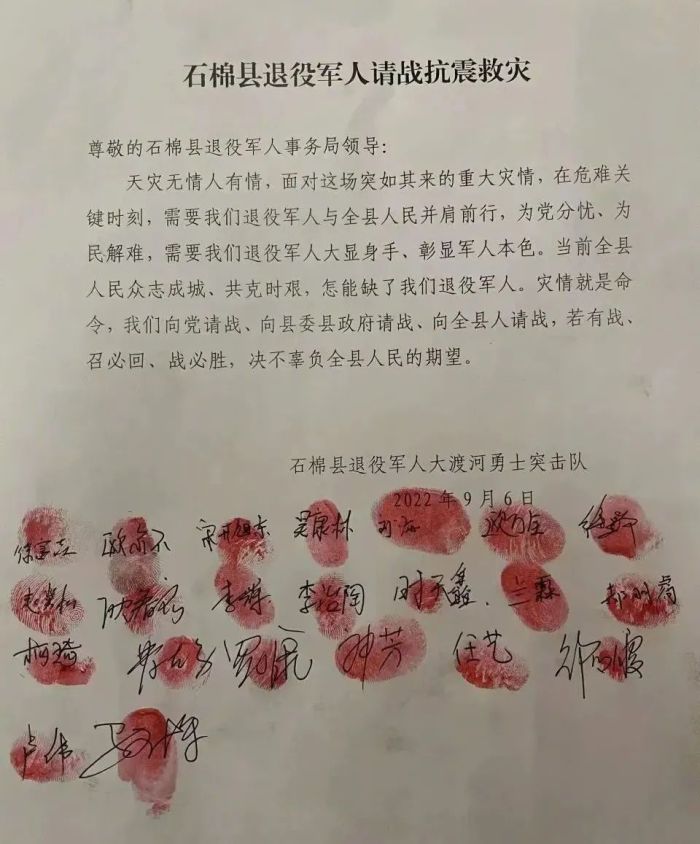 石棉县退役军人请战抗震救灾
尊敬的石棉县退役军人事务局领导：
天灾无情人有情，面对这场突如其来的重大灾情，在危难关
键时刻，需要我们退役军人与全县人民并肩前行，为党分忧、为
民解难，需要我们退役军人大显身手、彰显军人本色。当前全县
人民众志成城、共克时艰，怎能缺了我们退役军人。灾情就是命
令，我们向党请战、向县委县政府请战、向全县人请战，若有战、
召必回、战必胜，决不辜负全县人民的期望。
石棉县退役军人大渡河勇士突击队
2022年9月6日
吴康林
李治陶 兰霖
柯琦 钟芳 任艺
卢伟